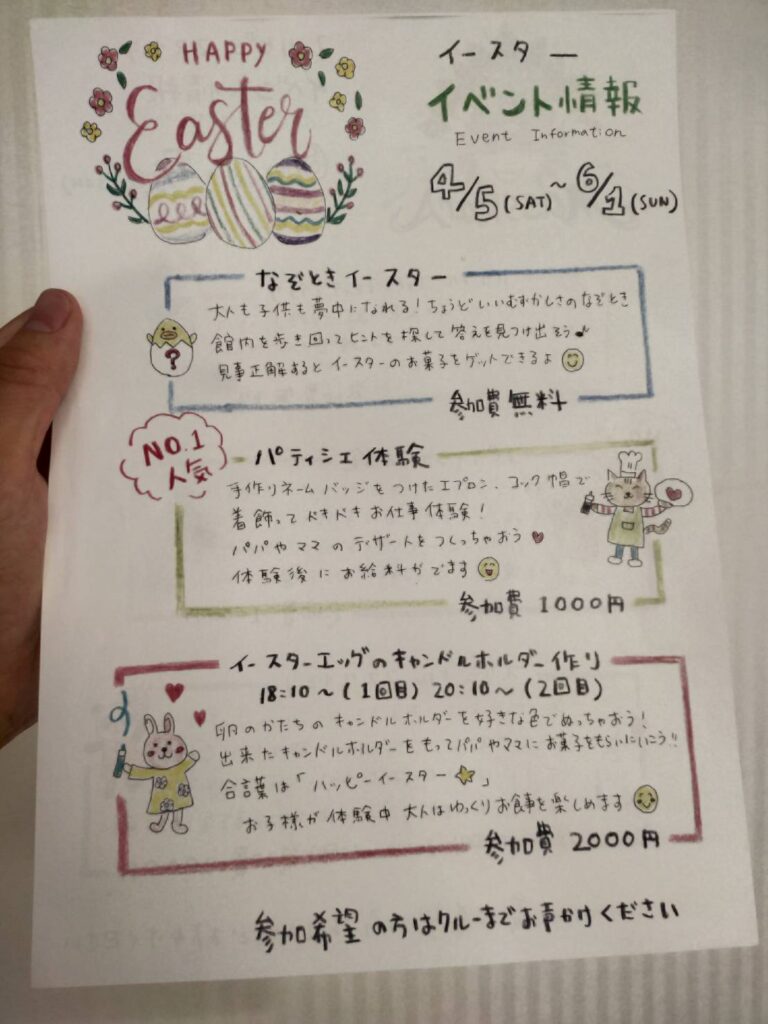 HAPPY
Easter
イースター
イベント情報
Event Information
4/5(SAT)~6/1(SUN)
なぞときイースター
大人も子供も夢中になれる!ちょうどいいむずかしさのなぞとき
館内を歩き回ってヒントを探して答えを見つけ出そう♪
見事正解するとイースターのお菓子をゲットできるよ
?
参加費無料
NO.1
人気
パティシエ体験
手作りネームバッジをつけたエプロン、コック帽で
着飾ってドキドキお仕事体験!
パパやママのデザートをつくっちゃおう
体験後にお給料がでます
参加費 1000円
イースターエッグのキャンドルホルダー作り
18:10~(1回目) 20:10~(2回目)
卵のかたちのキャンドルホルダーを好きな色でぬっちゃおう!
出来たキャンドルホルダーをもってパパやママにお菓子をもらいにいこう!!
合言葉は「ハッピーイースター☆」
お子様が体験中大人はゆっくりお食事を楽しめます
参加費 2000円
参加希望の方はクルーまでお声かけください